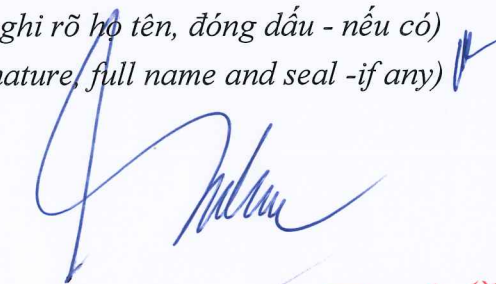 ghi rõ họ tên, đóng dấu - nếu có)
nature, full name and seal -if any)